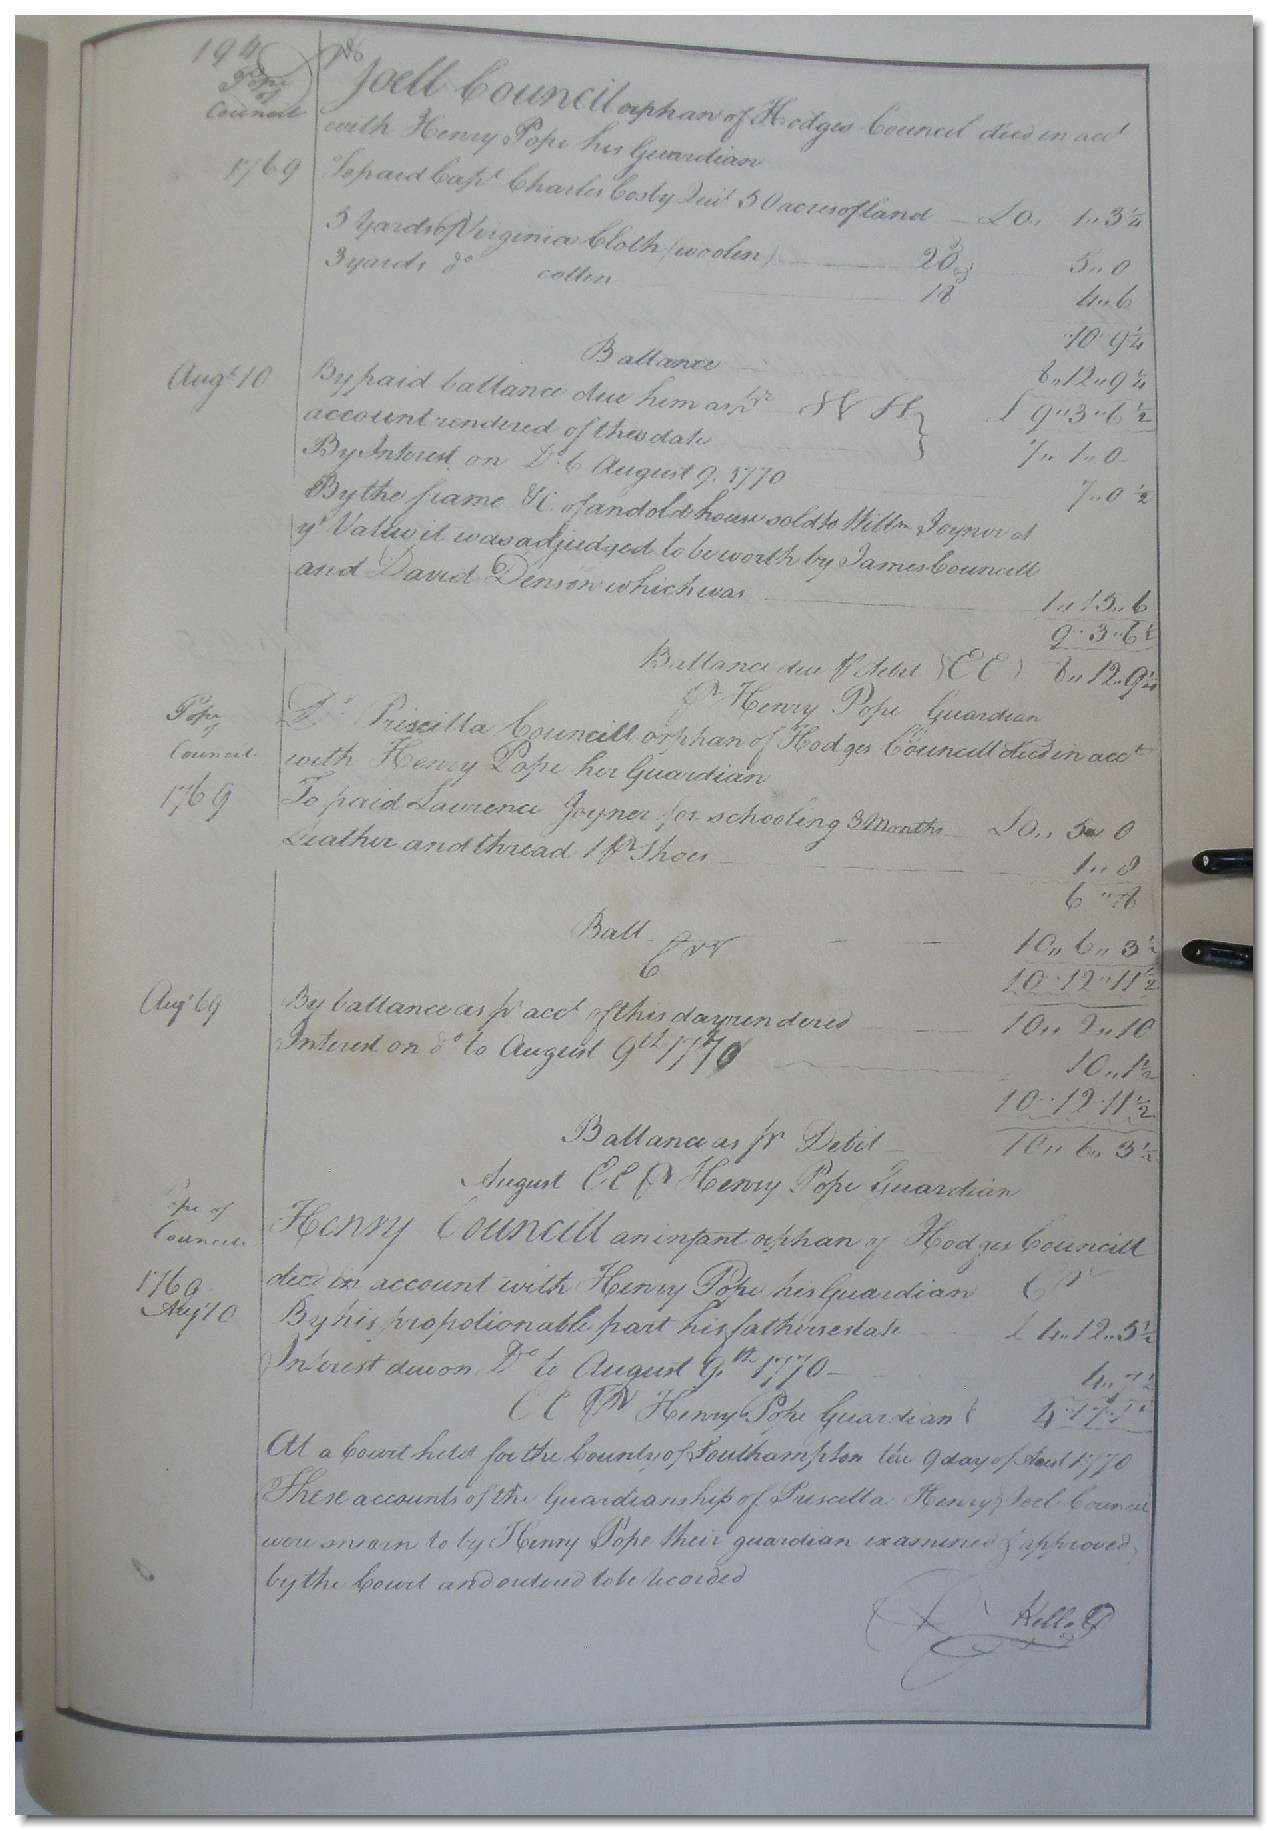 194
Pope
of
Council
Joell Council orphan of Hodges Council decd in acct
with Henry Pope his Guardian
1769 To paid Capt Charles Cosby Quit 50 acres of land £0,, 1,, 3 1/4
5 Yards of Virginia Cloth (woolen) 20 5,, 0
3 yards do cotten 18 4,, 6
10 9 1/4
Ballance 8,, 12,, 9 1/4
£ 9,, 3,, 6 1/2
Augt 10 By paid ballance due him as pr
account rendered of theis date 7,, 1,, 0
By Interest on Do to August 9. 1770 7,, 0 1/2
By the frame &c. of an old house sold to Willm Joyner at
yt Value it was adjudged to be worth by James Councill
and David Denson which was 1,, 15,, 6
9,, 3,, 6 1/2
Ballance due pr Debit (EE) 8,, 12,, 9 1/4
Pr Henry Pope Guardian
Pope
of
Council
Dr Priscilla Councill orphan of Hodges Councill decd in acct
with Henry Pope her Guardian
1769 To paid Lawrence Joyner for schooling 3 Months £0,, 5,, 0
Leather and thread 1 pr Shoes 1,, 8
6,, 8
Ball 10,, 6,, 3 1/2
Crr 10,, 12,, 11 1/2
Augt 69 By ballance as pr acct of this day rendered 10,, 2,, 10
Interest on do to August 9th 1770 10,, 1 1/2
10,, 12,, 11 1/2
Ballance as pr Debit 10,, 6,, 3 1/2
August EE Pr Henry Pope Guardian
Pope of
Council
Henry Councill an infant orphan of Hodges Councill
1769 decd in account with Henry Pope his Guardian Cr
Augt 10 By his propotionable part his fathers estate £ 4,, 12,, 5 1/2
Interest due on Do to August 9th 1770 4,, 7 1/2
EE Pr Henry Pope Guardian 4,, 17,, 1
At a Court held for the County of Southampton the 9 day of Aust 1770
These accounts of the Guardianship of Priscilla Henry & Joel Council
were sworn to by Henry Pope their guardian examined & approved
by the Court and ordered to be recorded
Kello